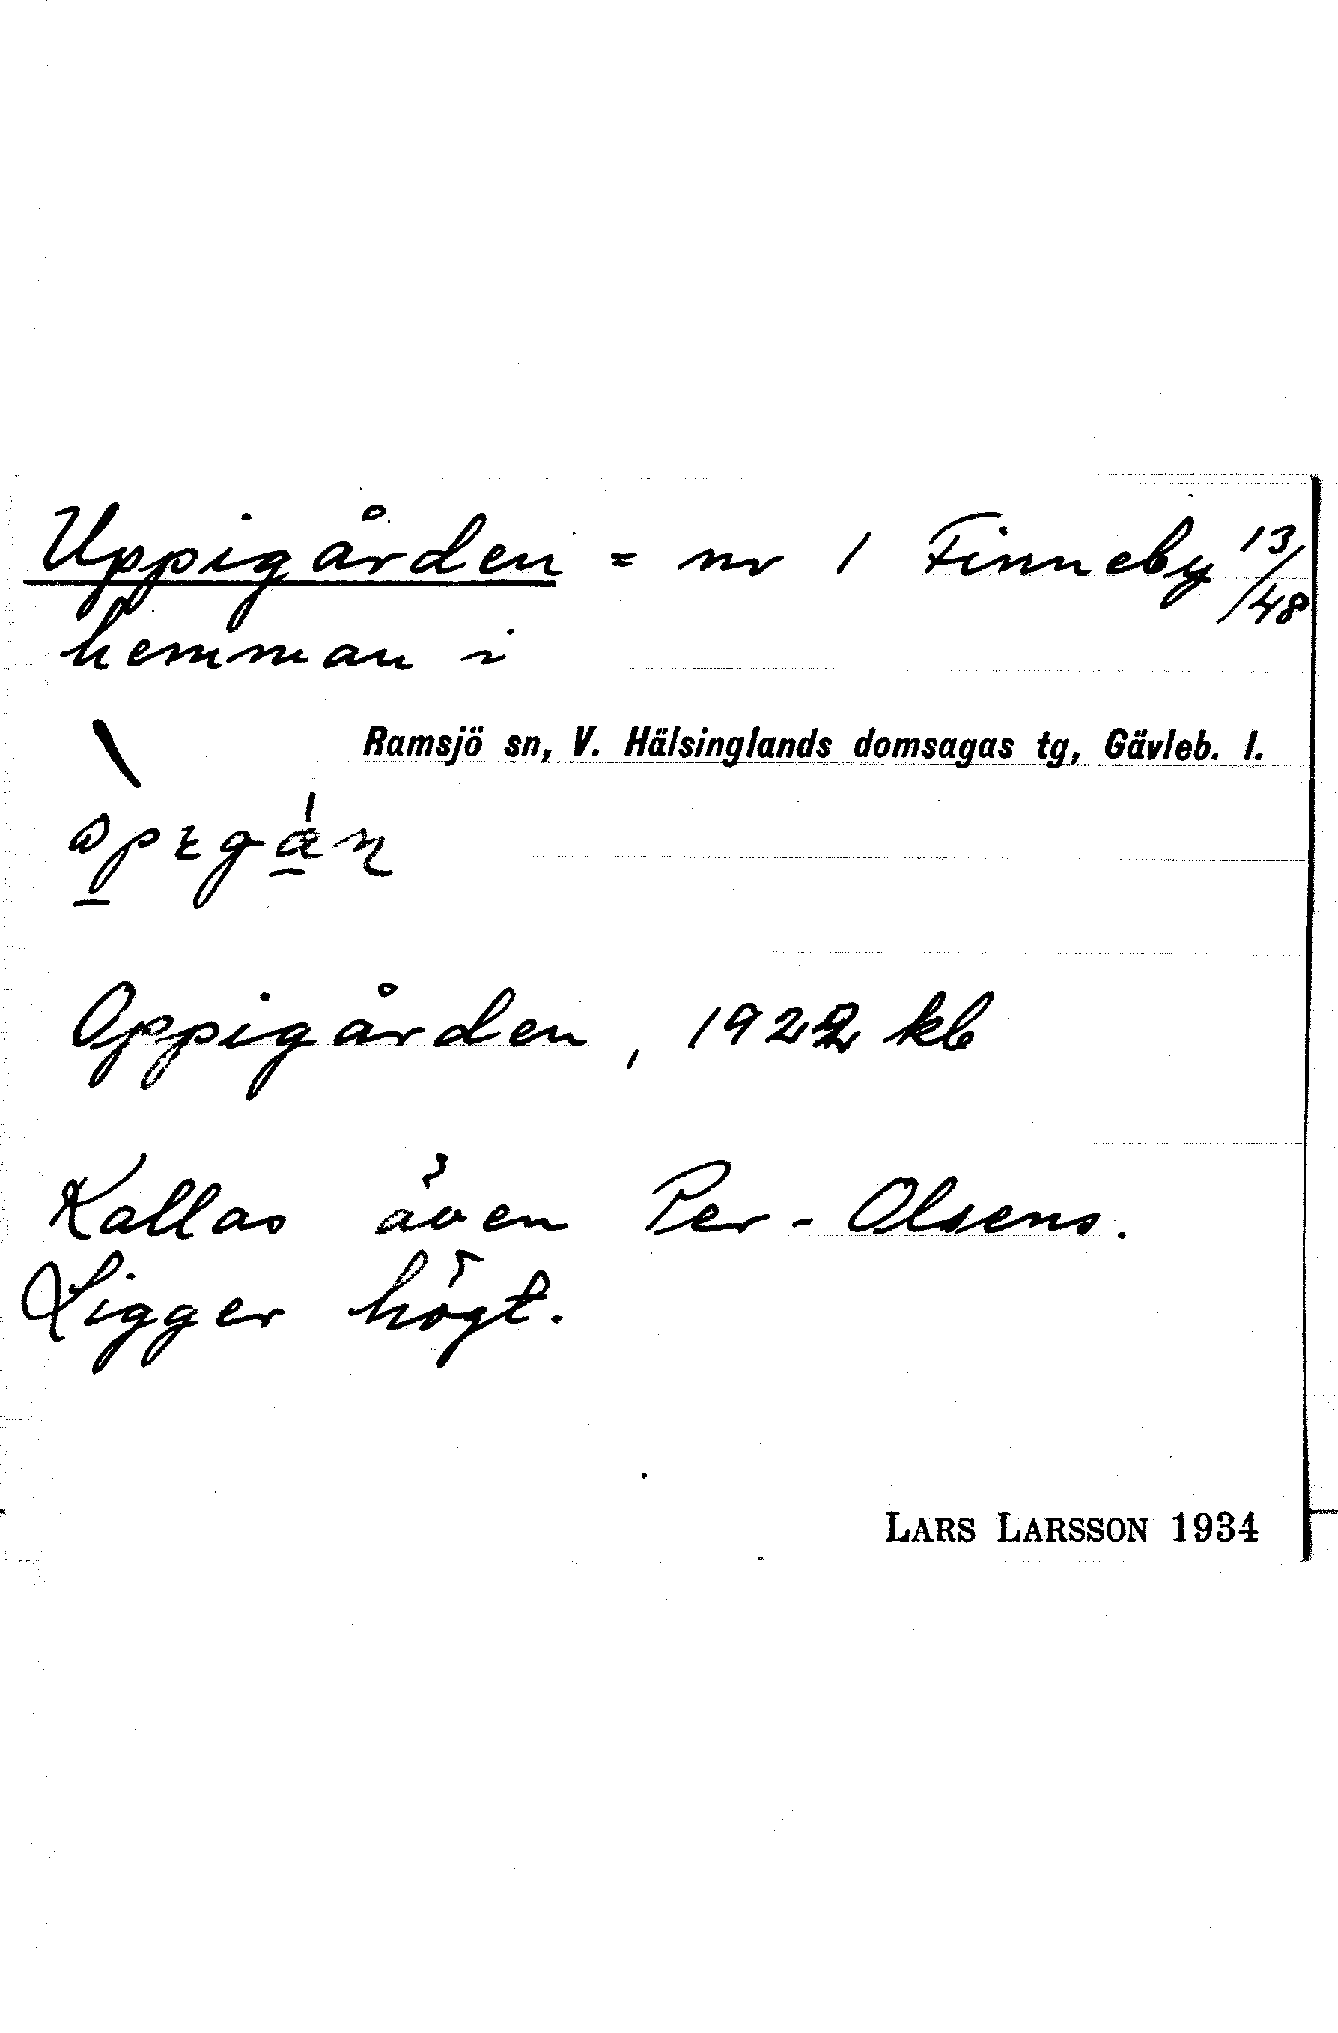 Uppigården = nr 1 Finneby 13/48
hemman i
Ramsjö sn, V. Hälsinglands domsagas tg, Gävleb. l.
Oppigården, 1922 kb
Kallas även Per-Olsens.
Ligger högt.
LARS LARSSON 1934